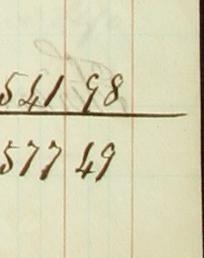 541 98
577 49